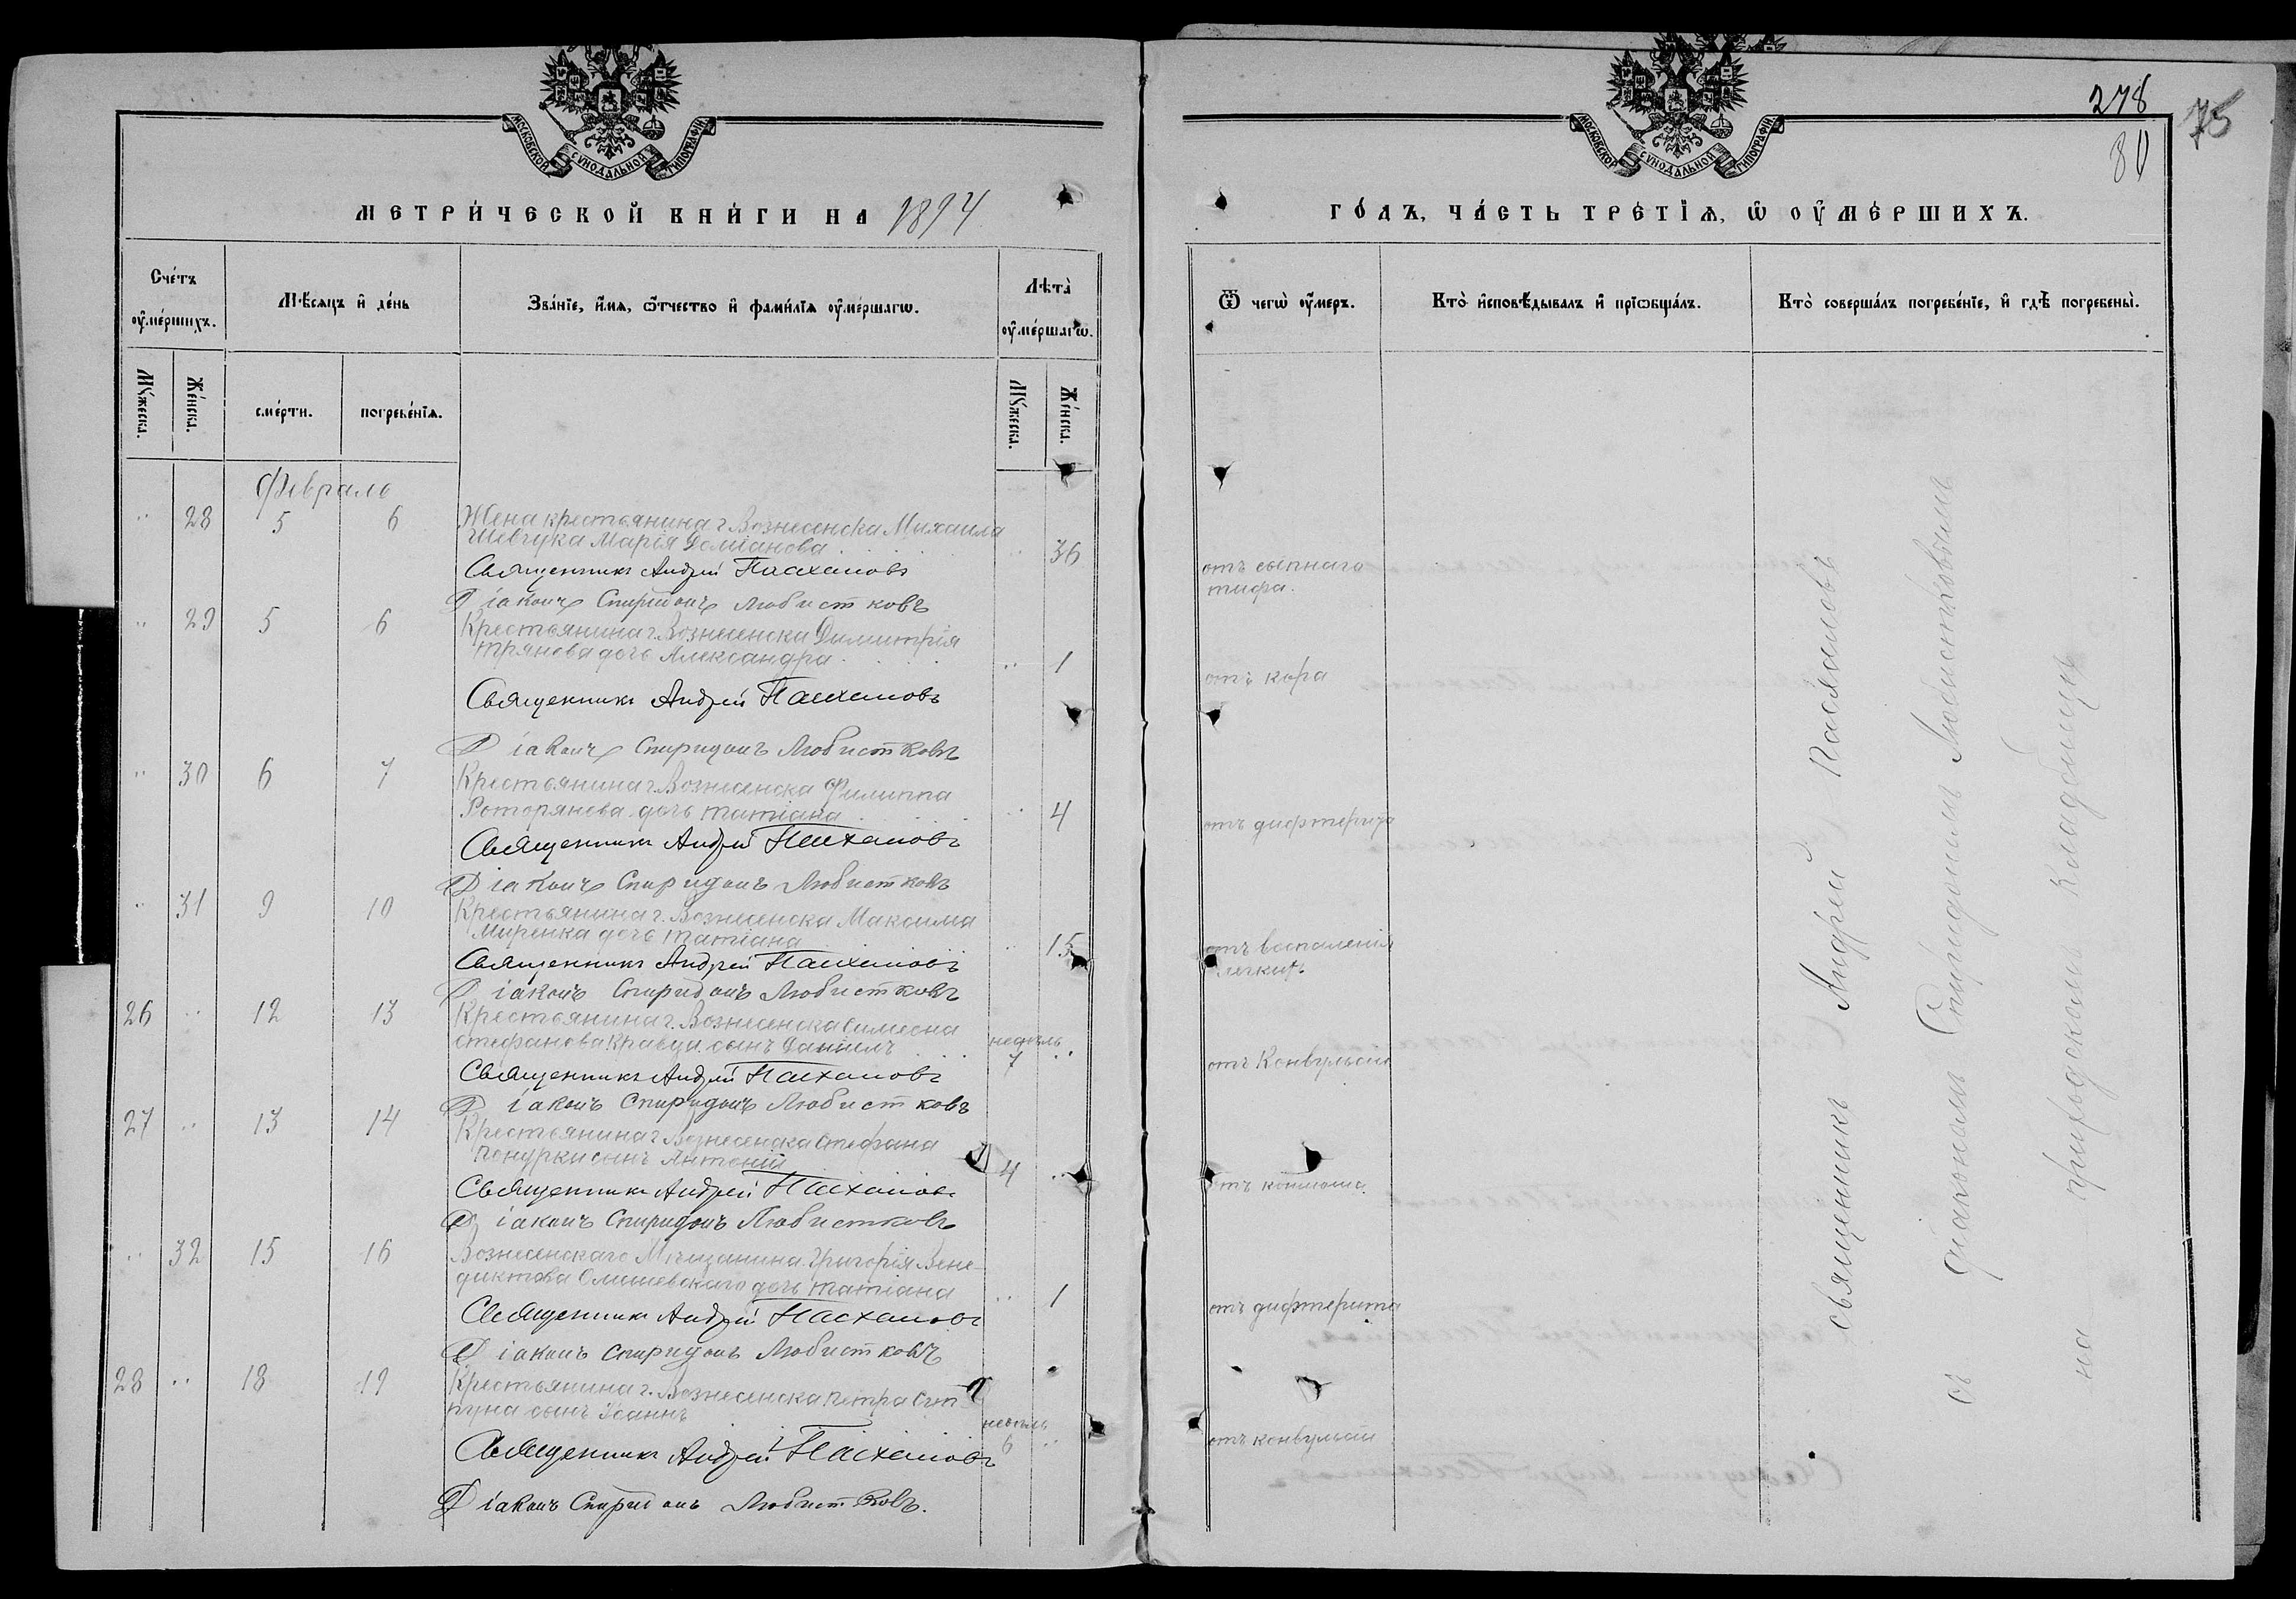 МОСКОВСКОЙ СѴНОДАЛЬНОЙ ТИПОГРАФІИ
МЕТРИ́ЧЕСКОЙ КНИ́ГИ НА 1894
Сче́тъ оу҆ме́ршихъ.
Мѣ́сяцъ и҆ де́нь
Зва́нїе, и҆́мя, ѻ҆́тчество и҆ фами́лїя оу҆ме́ршагѡ.
Лѣта̀ оу҆ме́ршагѡ.
Му́жеска.
Же́нска.
сме́рти.
погребе́нїя.
Му́жеска.
Же́нска.
Февраль
" 28 5 6 Жена крестьянина г. Вознесенска Михаила
Шевчука Марія Доміанова " 36
Священникъ Андрей Пасхаловъ
Діаконъ Спиридонъ Любистковъ
" 29 5 6 Крестьянина г. Вознесенска Димитрія
дочь Александра " 1
Священникъ Андрей Пасхаловъ
Діаконъ Спиридонъ Любистковъ
" 30 6 7 Крестьянина г. Вознесенска Филиппа
Роторянова дочь Татіана " 4
Священникъ Андрей Пасхаловъ
Діаконъ Спиридонъ Любистковъ
" 31 9 10 Крестьянина г. Вознесенска Максима
Миренка дочь Татіана " 15
Священникъ Андрей Пасхаловъ
Діаконъ Спиридонъ Любистковъ
26 " 12 13 Крестьянина г. Вознесенска Симеона
Стефанова Кравца сынъ Даніилъ недѣль 7 "
Священникъ Андрей Пасхаловъ
Діаконъ Спиридонъ Любистковъ
27 " 13 14 Крестьянина г. Вознесенска Стефана
Понурки сынъ Антоній 4 "
Священникъ Андрей Пасхаловъ
Діаконъ Спиридонъ Любистковъ
" 32 15 16 Вознесенскаго Мѣщанина Григорія Вене-
диктова Олишевскаго дочь Татіана " 1
Священникъ Андрей Пасхаловъ
Діаконъ Спиридонъ Любистковъ
28 " 18 19 Крестьянина г. Вознесенска Петра
сынъ Іоаннъ недѣль 6 "
Священникъ Андрей Пасхаловъ
Діаконъ Спиридонъ Любистковъ.
МОСКОВСКОЙ СѴНОДАЛЬНОЙ ТИПОГРАФІИ
278
75
80
ГО́ДЪ, ЧА́СТЬ ТРЕ́ТЇЯ, Ѡ҆ ОУ҆МЕ́РШИХЪ.
Ѿ чегѡ̀ оу҆́меръ.
Кто̀ и҆сповѣ́дывалъ и҆ прїѡбща́лъ.
Кто̀ соверша́лъ погребе́нїе, и҆ гдѣ̀ погребены̀.
отъ сыпнаго
тифа.
отъ кора
отъ дифтерита
отъ воспаленія
легкихъ
отъ Конвульсій
отъ дифтерита
отъ конвульсій
священникъ Андрей Пасхаловъ
съ діакономъ Спиридономъ Любистковымъ
на приходскомъ кладбищѣ